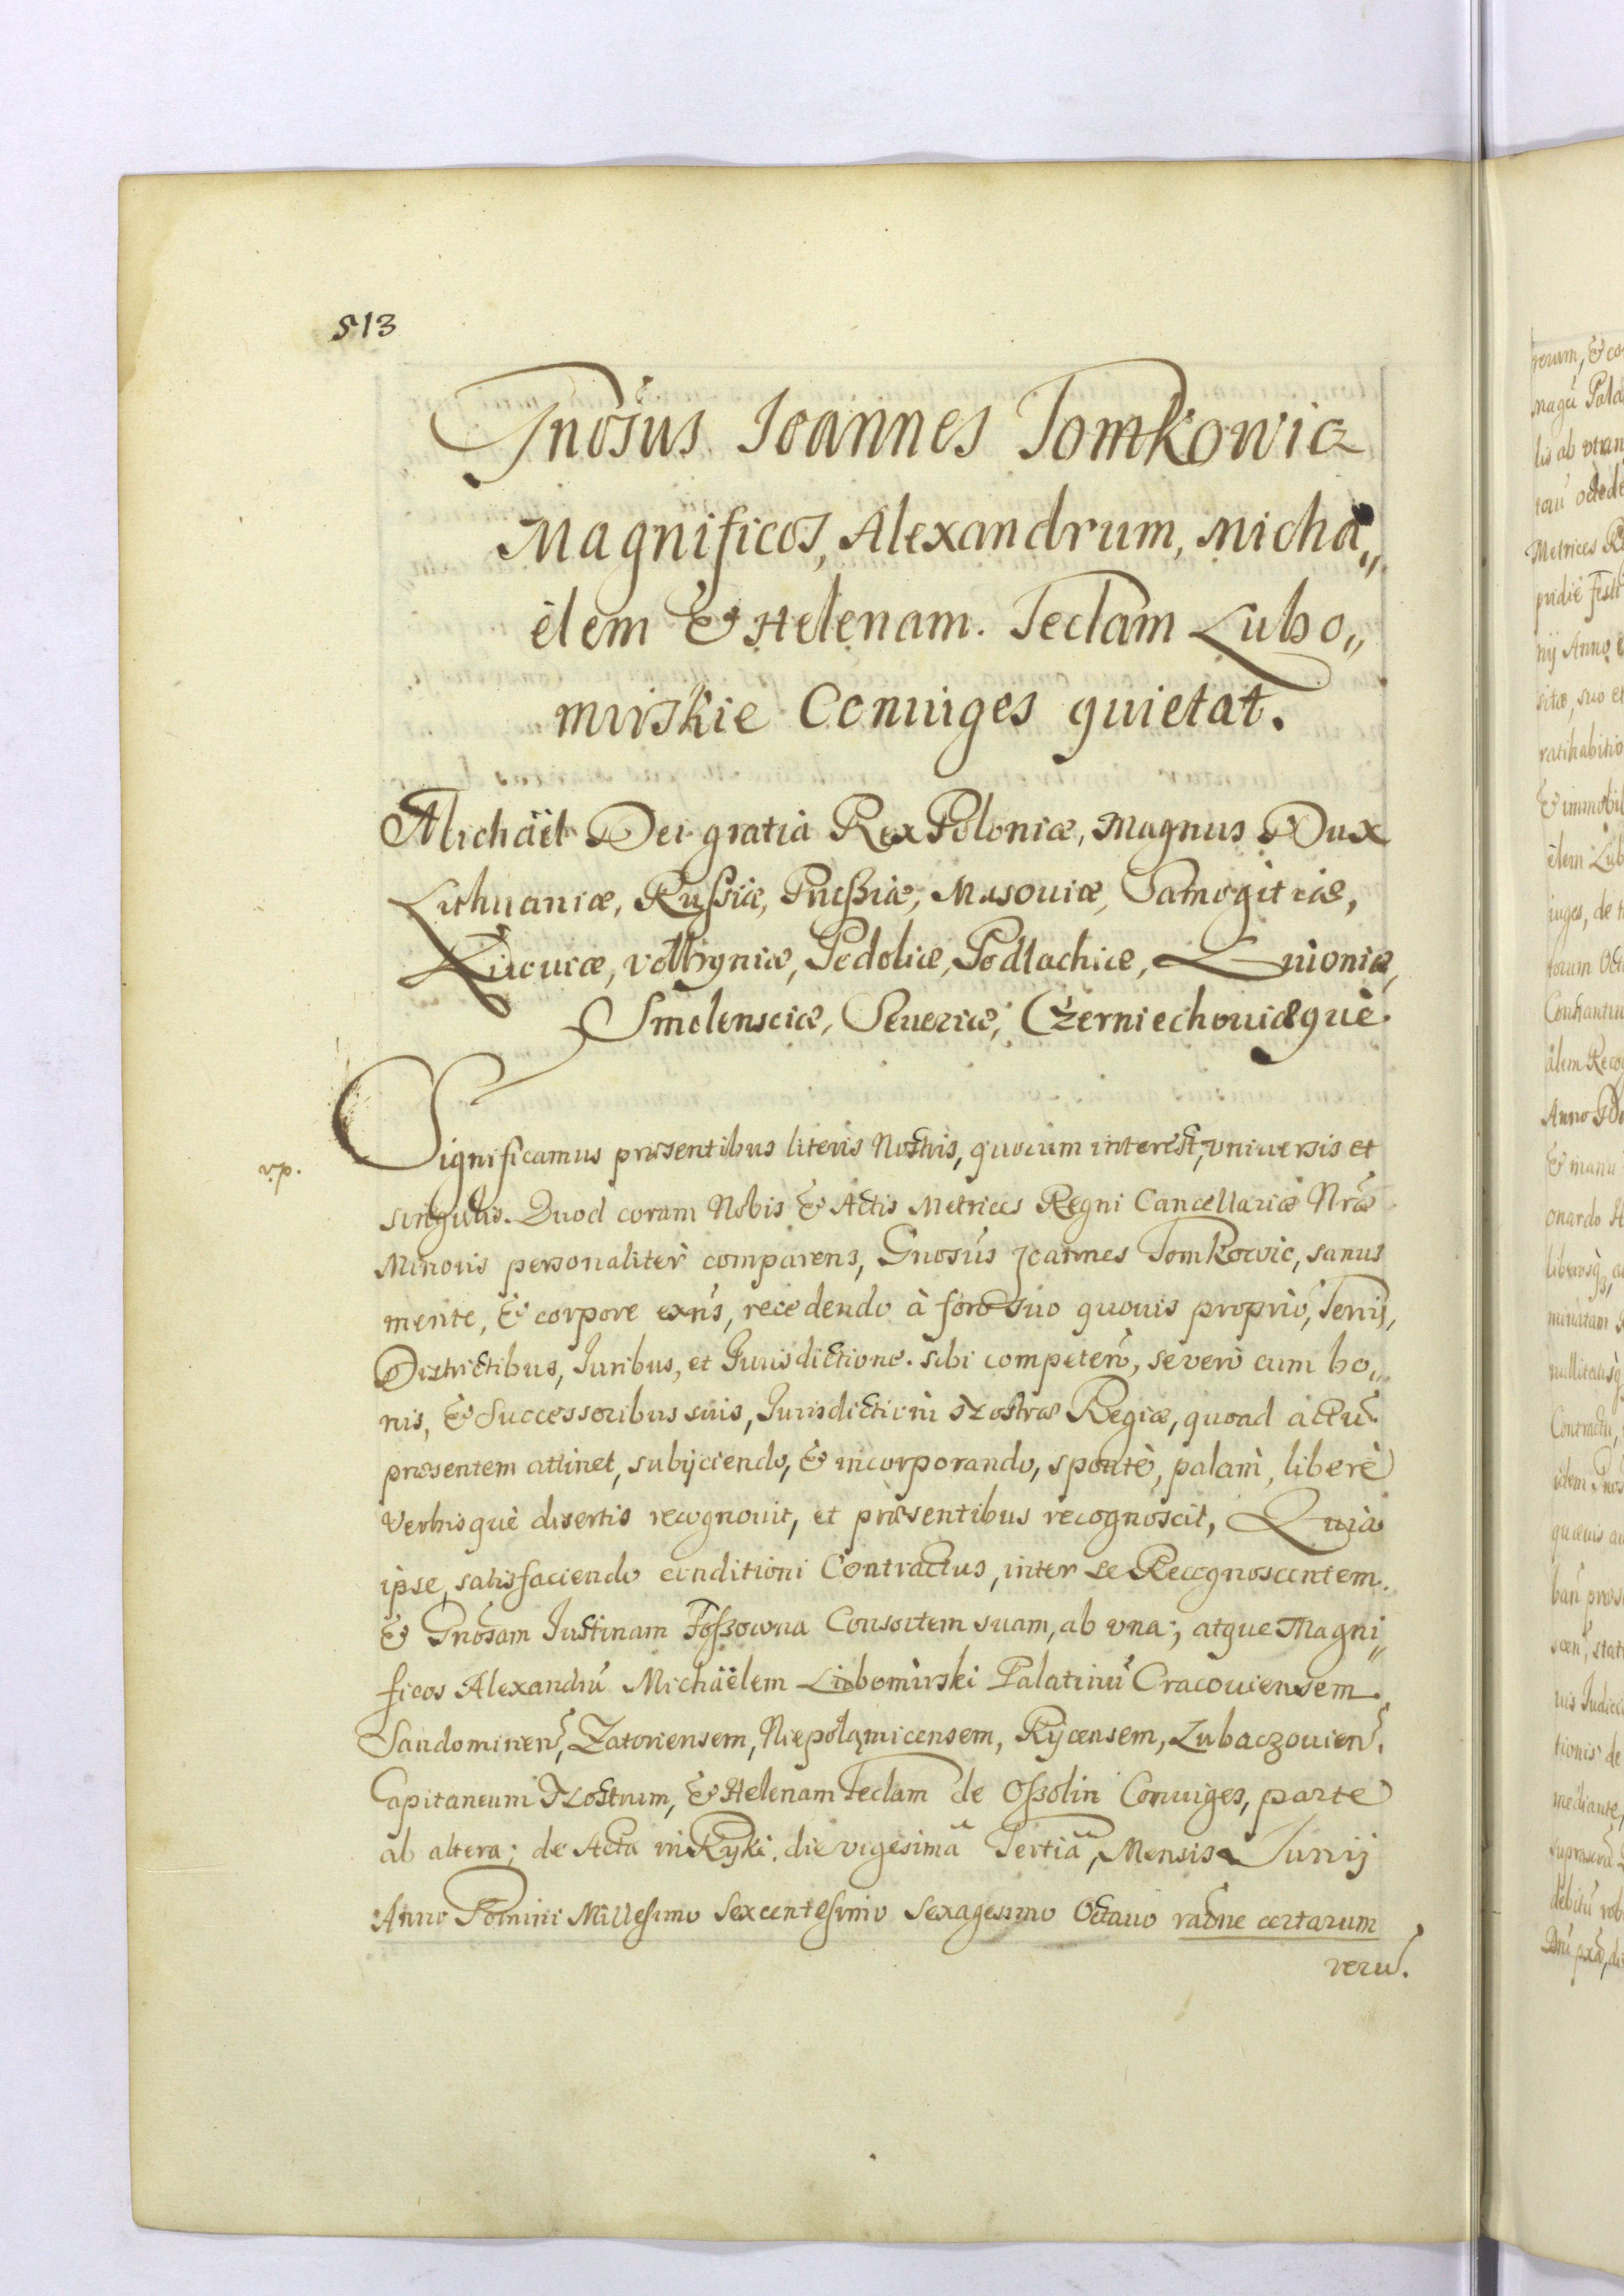 513
Gnosus Ioannes Tomkowic
Magnificos, Alexandrum, Micha„
ëlem & Helenam. Teclam Lubo„
mirskie Coniuges quietat.
Michäel Dei gratia Rex Poloniæ, Magnus Dux
Lithuaniæ, Rußiæ, Prußiæ, Masouiæ, Samogitiæ,
Kiiouiæ, volhyniæ, Podoliæ, Podlachiæ, Liuoniæ,
Smolensciæ, Seueriæ, Czerniechouiæquè.
vp.
Significamus præsentibus literis Nostris, quorum interest, vniuersis et
singulis. Quod coram Nobis & Actis Metrices Regni Cancellariæ Nræ
Minoris personalitèr comparens, Gnosus Joannes Tomkowic, sanus
mente, & corpore exns, recedendo à foro suo quouis proprio, Terris,
Districtibus, Iuribus, et Iurisdictione. sibi competen, se vero cum bo„
nis, & Successoribus suis, Iurisdictioni Nostræ Regiæ, quoad actu
præsentem attinet, subijciendo, & incorporando, spontè, palam, liberè
Verbisquè disertis recognouit, et præsentibus recognoscit, Quià
ipse, satisfaciendo conditioni Contractus, inter se Recognoscentem.
& Gnosam Iustinam Foßowna Consortem suam, ab vna; atque Magni„
ficos Alexandru Michäëlem Lubomirski Palatinu Cracouiensem.
Sandomirien, Zatoriensem, Niepołomicensem, Rycensem, Lubaczouien.
Capitaneum Nostrum, & Helenam Teclam de Oßolin Coniuges, parte
ab altera; de Acta in Ryki. die vigesimâ Tertiâ, Mensis Iunij
Anno Domini Millesimo Sexcentesimo Sexagesimo Octauo raõne certarum
reru.